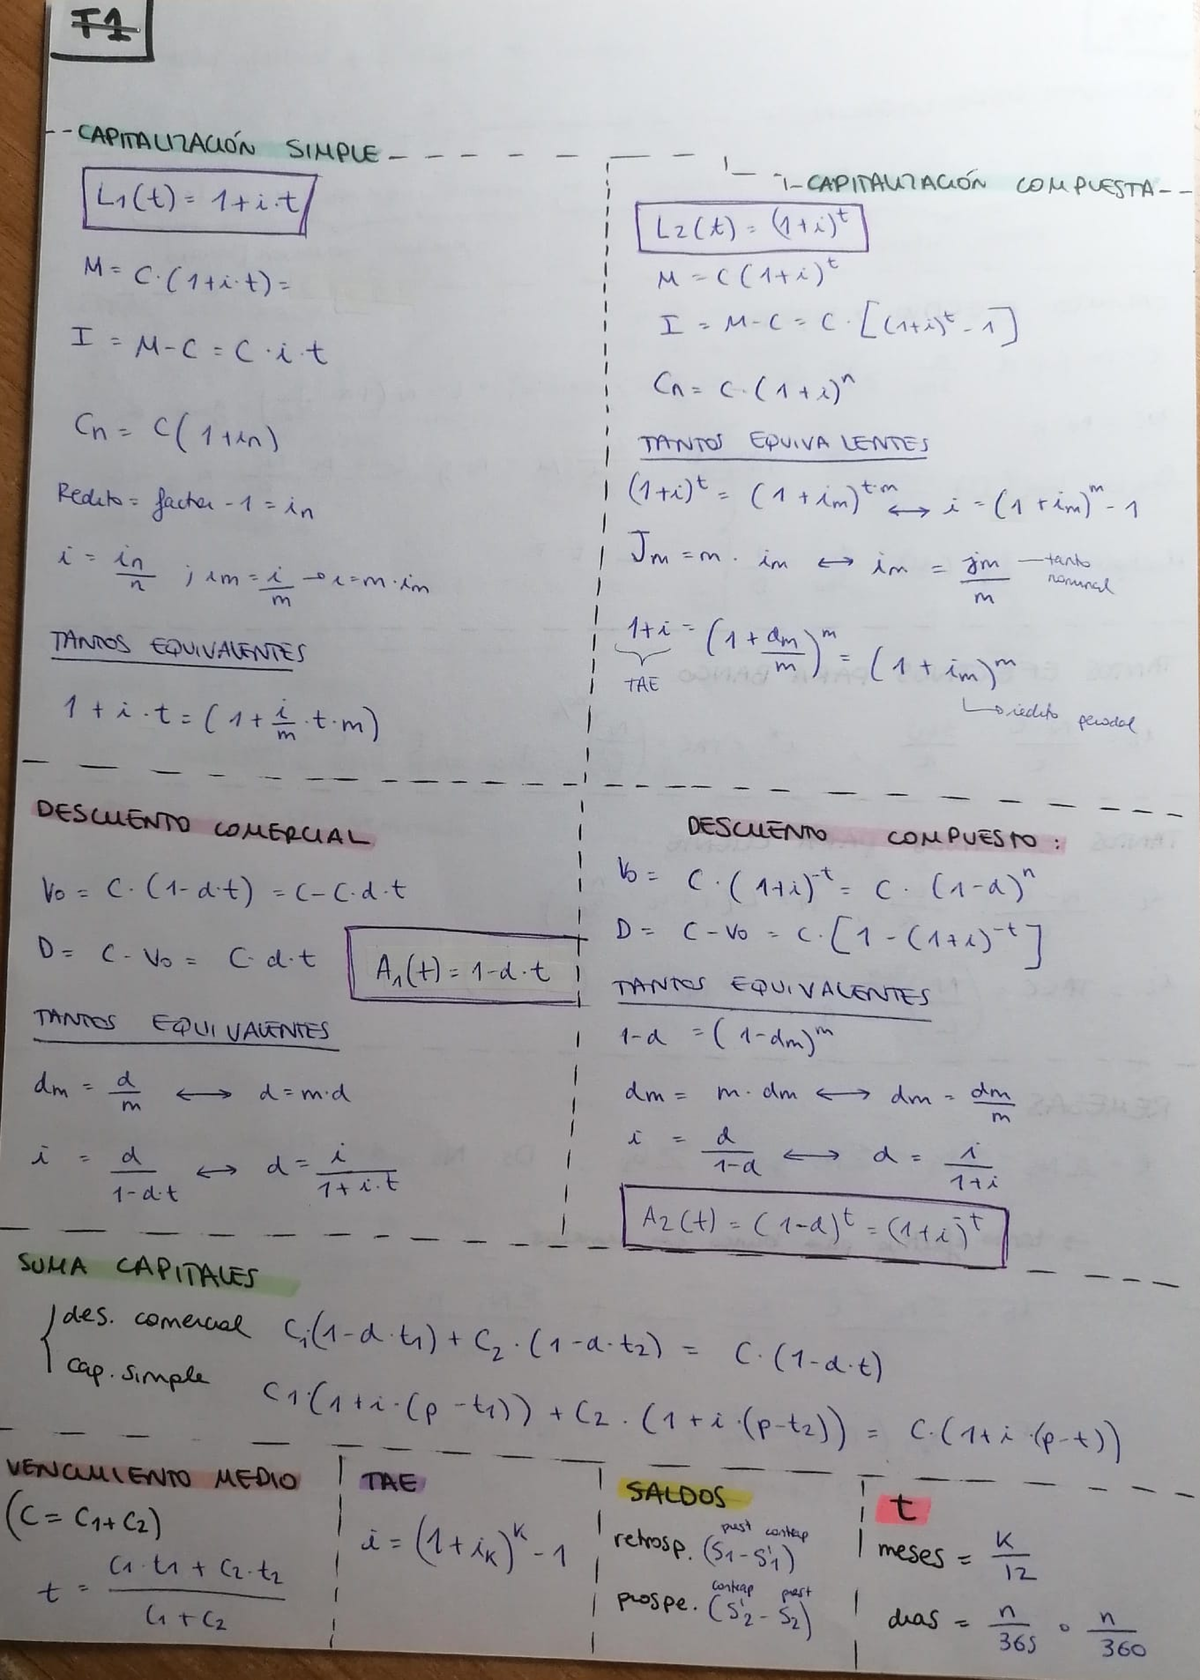 T1
CAPITALIZACIÓN SIMPLE
L1(t) = 1+i·t
M = C·(1+i·t)=
I = M-C = C·i·t
Cn = C(1+in)
Redito = factor - 1 = in
i = in/n ; im = i/m → i = m·im
TANTOS EQUIVALENTES
1+i·t = (1+i/m·t·m)
CAPITALIZACIÓN COMPUESTA
L2(t) = (1+i)^t
M = C(1+i)^t
I = M-C = C·[(1+i)^t - 1]
Cn = C·(1+i)^n
TANTOS EQUIVALENTES
(1+i)^t = (1+im)^t·m ↔ i = (1+im)^m - 1
Jm = m· im ↔ im = jm/m — tanto nominal
1+i = (1+dm/m)^m = (1+im)^m
TAE
↳ redito periodal
DESCUENTO COMERCIAL
Vo = C·(1-d·t) = C-C·d·t
D = C-Vo = C·d·t
A1(t) = 1-d·t
TANTOS EQUIVALENTES
dm = d/m ↔ d=m·d
i = d/1-d·t ↔ d = i/1+i·t
DESCUENTO COMPUESTO:
Vo = C·(1+i)^-t = C·(1-d)^n
D = C-Vo = C·[1-(1+i)^-t]
TANTOS EQUIVALENTES
1-d = (1-dm)^m
dm = m·dm ↔ dm = dm/m
i = d/1-d ↔ d = i/1+i
A2(t) = (1-d)^t = (1+i)^-t
SUMA CAPITALES
des. comercial C1(1-d·t1) + C2·(1-d·t2) = C·(1-d·t)
cap. simple C1·(1+i·(p-t1)) + C2·(1+i·(p-t2)) = C·(1+i·(p-t))
VENCIMIENTO MEDIO
(C = C1+C2)
t = C1·t1 + C2·t2/C1+C2
TAE
i = (1+iK)^K - 1
SALDOS
prest contrap
retrosp. (S1-S'1)
contrap prest
prospe. (S'2-S2)
t
meses = K/12
dias = n/365 o n/360